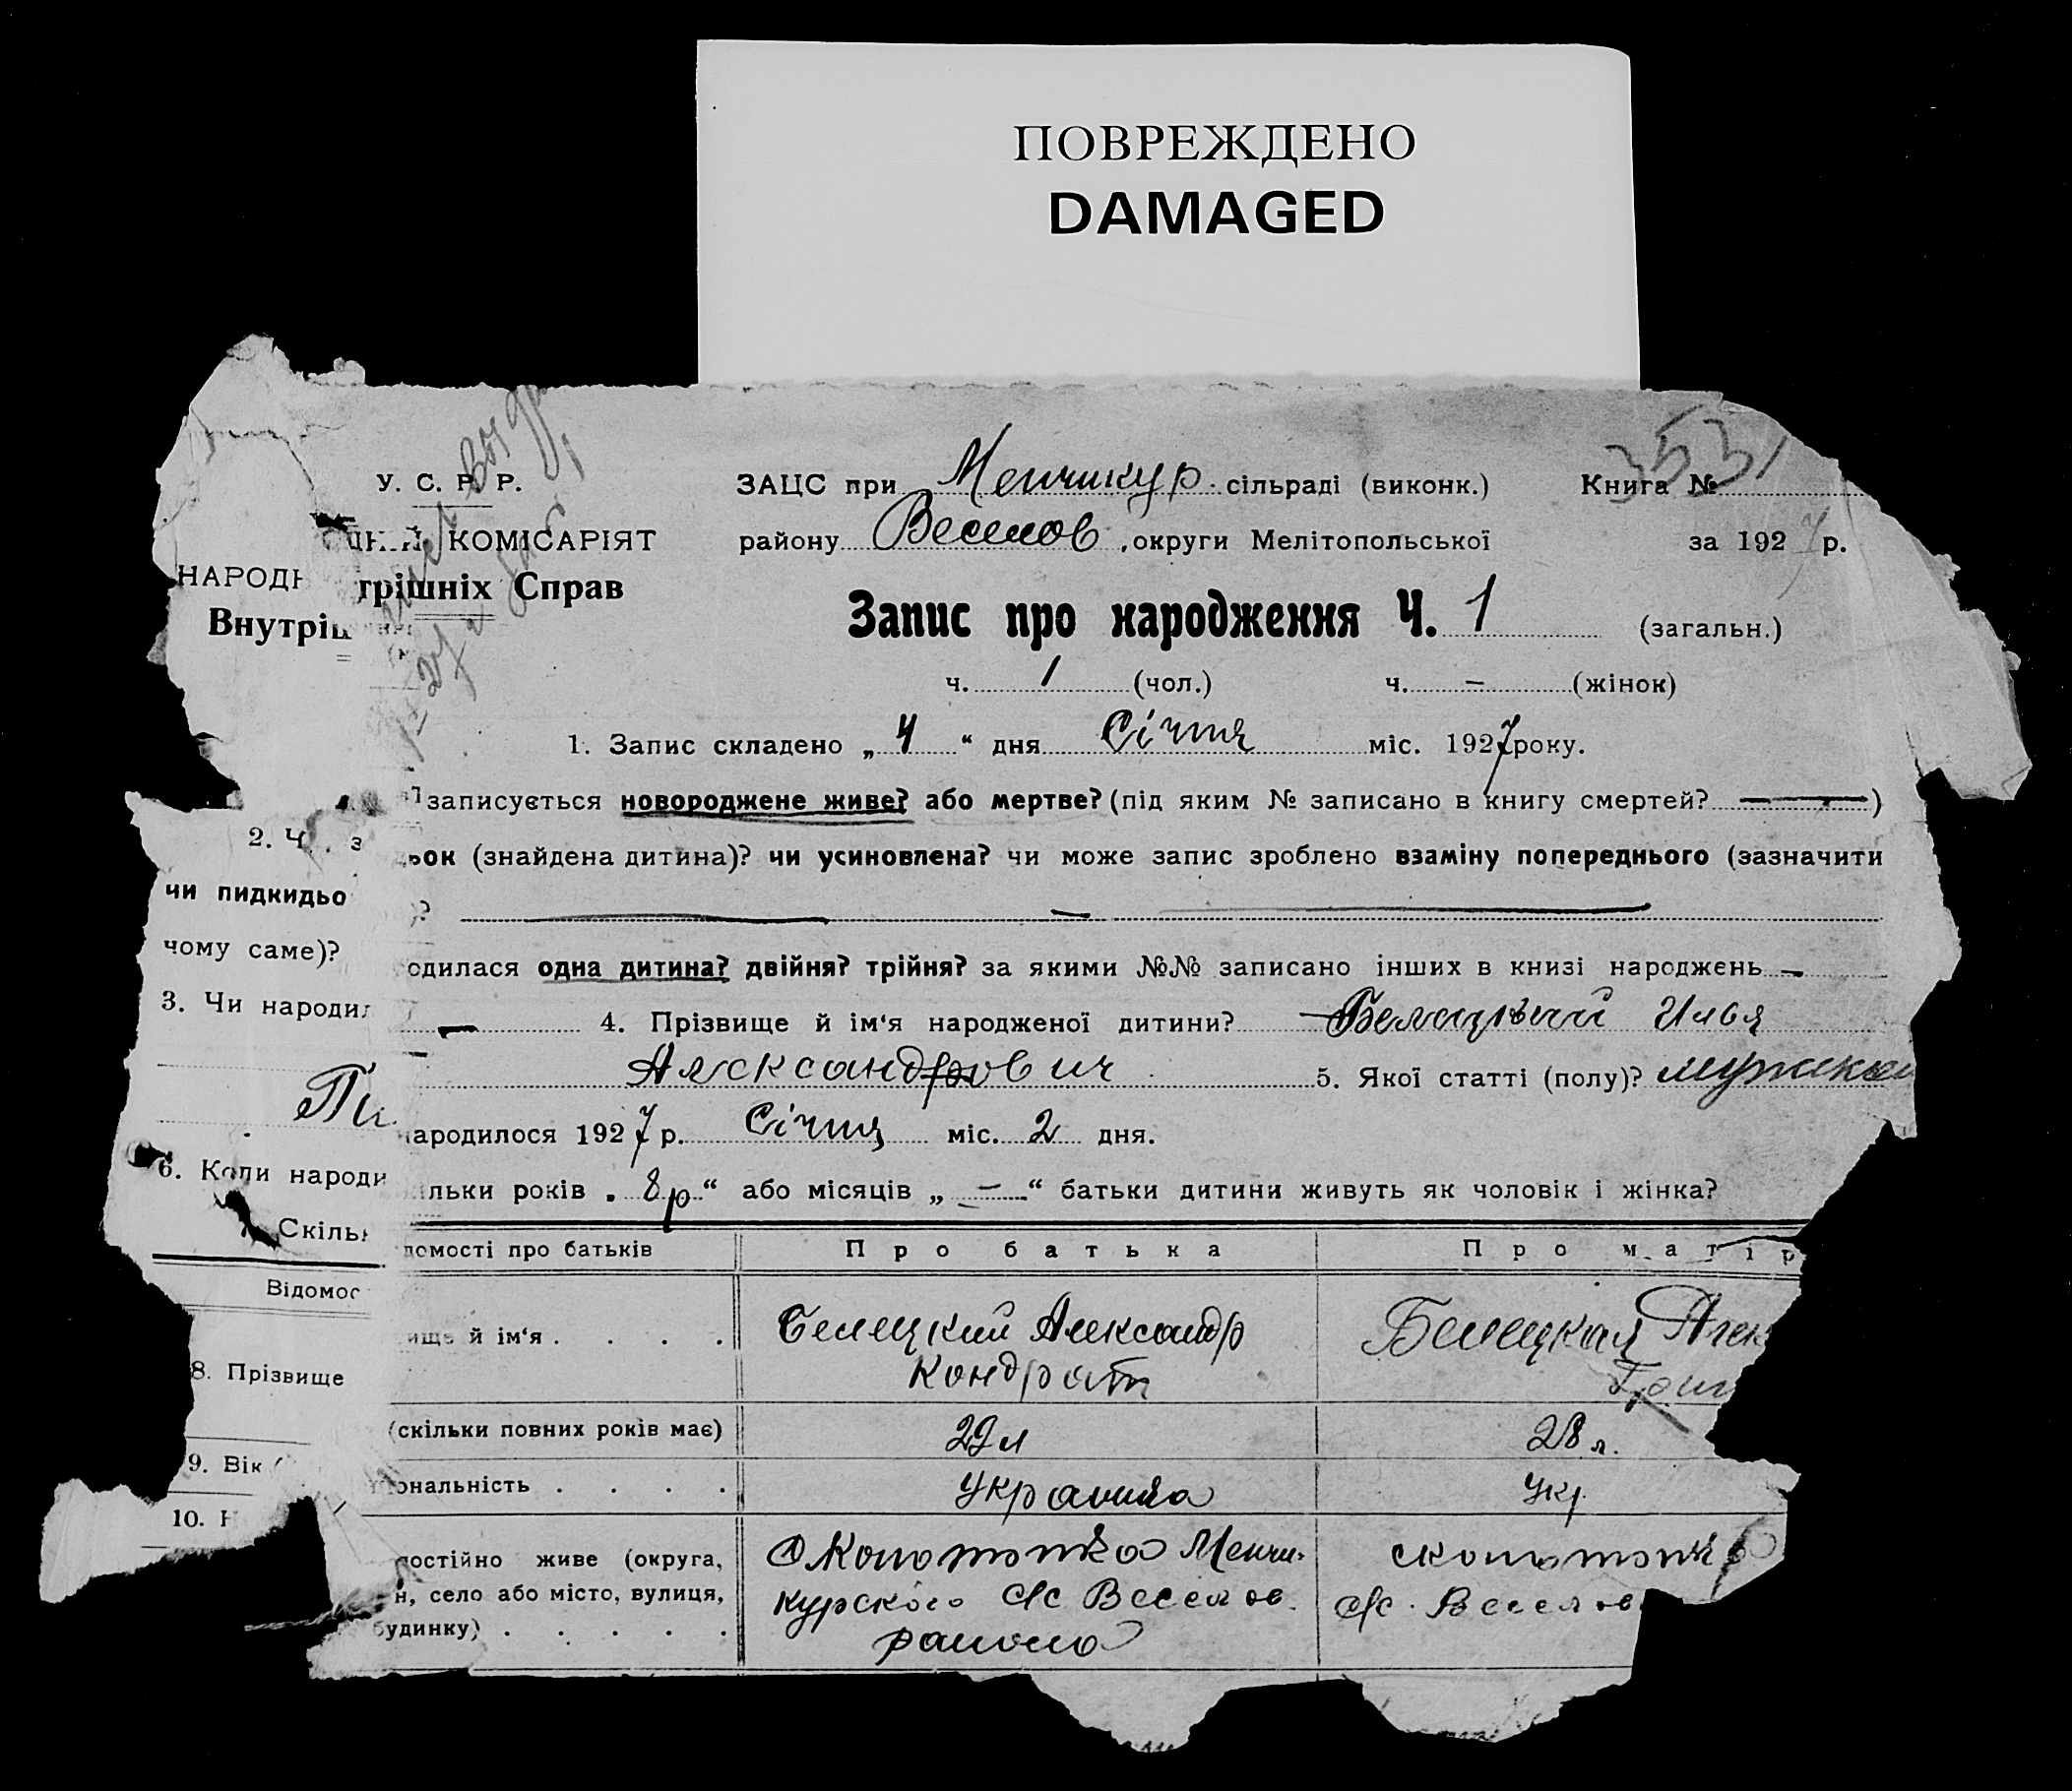 ПОВРЕЖДЕНО
DAMAGED
У. С. Р. Р.
КОМІСАРІЯТ
НАРОДН
трішніх Справ
Внутріш
ЗАЦС при Менчикур. сільраді (виконк.)
Книга № 3531
району Веселов, округи Мелітопольської
за 1927 р.
Запис про народження Ч. 1 (загальн.)
ч. 1 (чол.) ч. – (жінок)
1. Запис складено „ 4 “ дня Січня міс. 1927 року.
записується новороджене живе? або мертве? (під яким № записано в книгу смертей? —)
2. Ч з
ьок (знайдена дитина)? чи усиновлена? чи може запис зроблено взаміну попереднього (зазначити
чи пидкидьо
)? —
чому саме)?
одилася одна дитина? двійня? трійня? за якими №№ записано інших в книзі народжень –
3. Чи народил
– 4. Прізвище й ім‘я народженої дитини? Белецький Илья
Александрович 5. Якої статті (полу)?
Пи
ародилося 1927 р. Січня міс. 2 дня.
6. Коли народи
льки років „ 8 р “ або місяців „ – “ батьки дитини живуть як чоловік і жінка?
Скільк
домості про батьків Про батька Про матір
Відомос
ище й ім‘я . . . . Белецкий Александр Кондрат Белецкая Алек Григ
8. Прізвище
(скільки повних років має) 29 л 28 л.
9. Вік (
ональність . . . . Украина Укр.
10. Н
постійно живе (округа,
н, село або місто, вулиця,
будинку) . . . . .
Менчи-
курского с/с Веселов.
района
с/с. Веселов